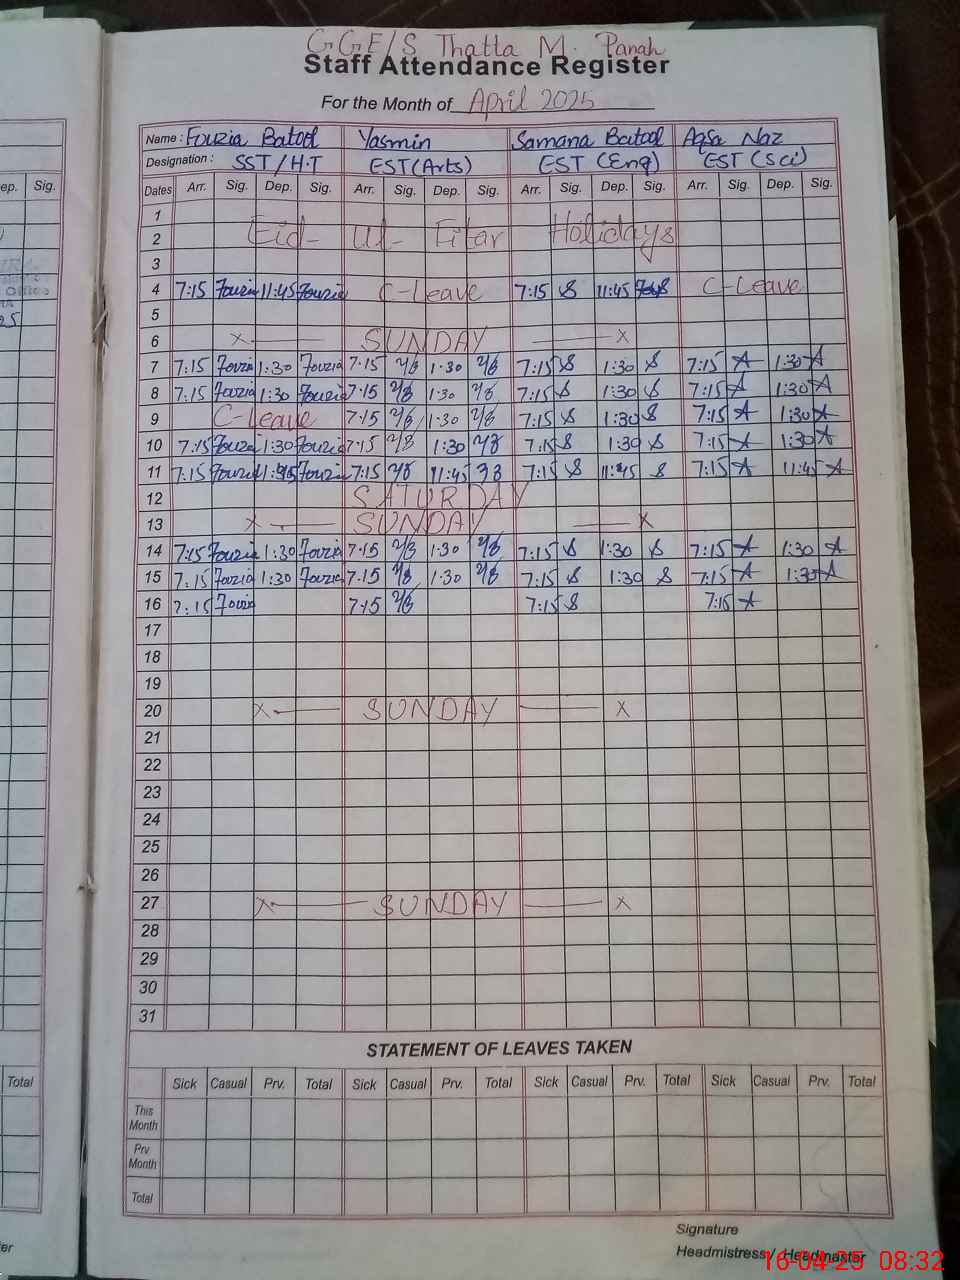 G.G.E/S Thatta M. Panah
Staff Attendance Register
For the Month of April 2025
Name : Fouzia Batool Yasmin Samana Batool Aqsa Naz
Designation : SST/H.T EST(Arts) EST (Eng) EST (Sci)
ep. Sig. Dates Arr. Sig. Dep. Sig. Arr. Sig. Dep. Sig. Arr. Sig. Dep. Sig. Arr. Sig. Dep. Sig.
1
2 Eid- Ul- Fitar Holidays
3
4 7:15 Fouzia 11:45 Fouzia C-Leave 7:15 S 11:45 C-Leave
5
6 x SUNDAY x
7 7:15 Fouzia 1:30 Fouzia 7:15 1:30 7:15 S 1:30 S 7:15 A 1:30 A
8 7:15 Fouzia 1:30 Fouzia 7:15 1:30 7:15 S 1:30 S 7:15 A 1:30 A
9 C-Leave 7:15 1:30 7:15 S 1:30 S 7:15 A 1:30 A
10 7:15 Fouzia 1:30 Fouzia 7:15 1:30 7:15 S 1:30 S 7:15 A 1:30 A
11 7:15 Fouzia 11:45 Fouzia 7:15 11:45 7:15 S 11:45 S 7:15 A 11:45 A
12 SATURDAY
13 x SUNDAY x
14 7:15 Fouzia 1:30 Fouzia 7:15 1:30 7:15 S 1:30 S 7:15 A 1:30 A
15 7:15 Fouzia 1:30 Fouzia 7:15 1:30 7:15 S 1:30 S 7:15 A 1:30 A
16 7:15 Fouzia 7:15 7:15 S 7:15 A
17
18
19
20 x SUNDAY x
21
22
23
24
25
26
27 x SUNDAY x
28
29
30
31
STATEMENT OF LEAVES TAKEN
Total Sick Casual Prv. Total Sick Casual Prv. Total Sick Casual Prv. Total Sick Casual Prv. Total
This Month
Prv Month
Total
Signature
Headmistress / Headmaster
16-04-25 08:32